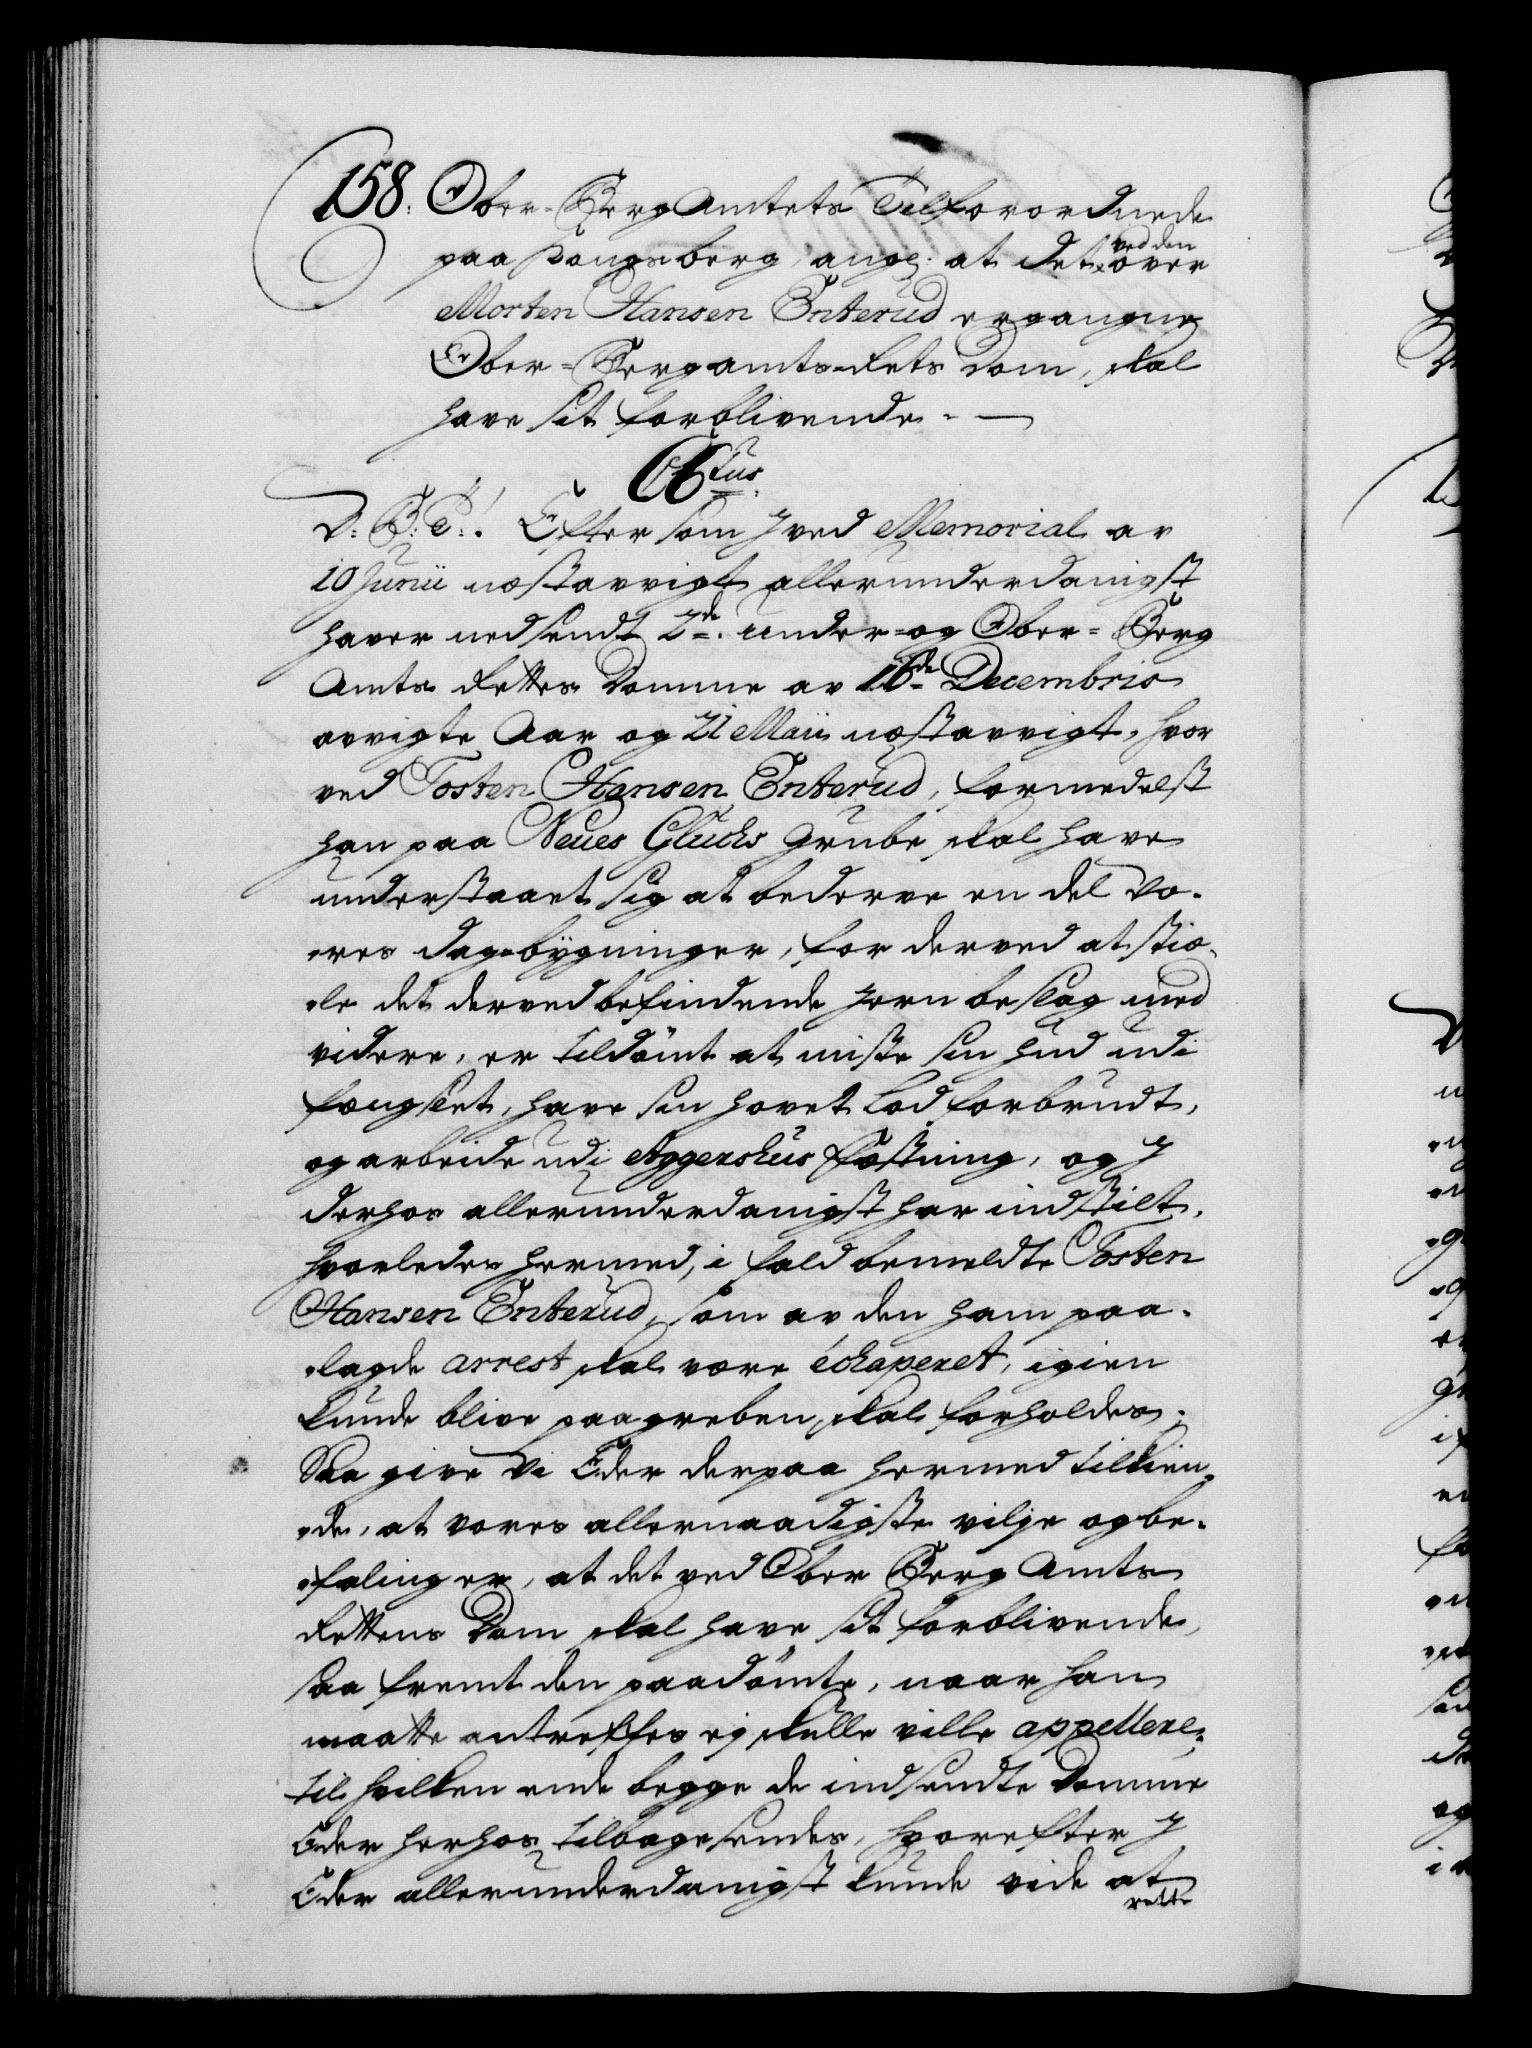 158. Ober-BergAmtets Tilforordnede
paa Kongsberg, angl: at det ved den over
Morten Hansen Enterud ergangne
Ober-Bergamts-Rets Dom, skal
have sit forblivende.
C6tus
D: B: T:. Efter som I ved Memorial av
10 Junii næstavvigt allerunderdanigst
haver nedsendt 2de under- og Ober-Berg
Amts Rettes Domme av 16de Decembris
avvigte Aar og 21 Maii næstavvigt, hvor
ved Tosten Hansen Enterud, formedelst
han paa Neues Glucks Grube skal have
understaaet sig at bederve en del Vo-
-res dag-bygninger, for derved at stiæ-
-le det derved befindende Jern beslag med
videre, er tildömt at miste sin hud udi
fængslet, have sin hovet Lod forbrudt,
og arbeide udi Aggershus fæstning, og I
derhos allerunderdanigst har indstilt,
hvorledes hermed, i fald bemeldte Tosten
Hansen Enterud, som av den ham paa-
-lagde arrest skal være échaperet, igien
kunde blive paagreben, skal forholdes;
Saa give Vi Eder derpaa hermed tilkien-
-de, at vores allernaadigste vilje og be-
-faling er, at det ved Ober Berg Amts
Rettens Dom skal have sit forblivende,
saa fremt den paadömte, naar han
maatte antreffes ej skulle ville appellere;
til hvilken ende begge de indsendte Domme
Eder herhos tilbagesendes, hvorefter I
Eder allerunderdanigst kunde vide at
rette